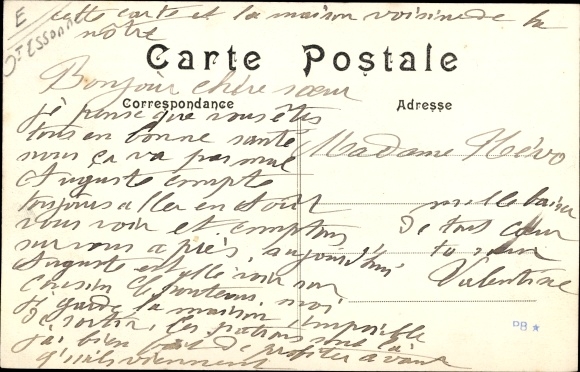 E
Dt Essonne
cette carte et la maison voisine de la
nôtre
Carte Postale
Bonjour chère sœur
Correspondance
je pense que vous êtes
tous en bonne santé
nous ça va pas mal
Auguste compte
toujours aller en Août
vous voir et comptons
sur vous après, aujourd'hui
Auguste est allé voir son
cousin moi
je garde la maison impossible
de sortir, les patrons sont ici
j'ai bien fait de profiter avant
qu'ils viennent
Adresse
Madame Hévo
mille baisers
de tout cœur
ta sœur
Valentine
PB